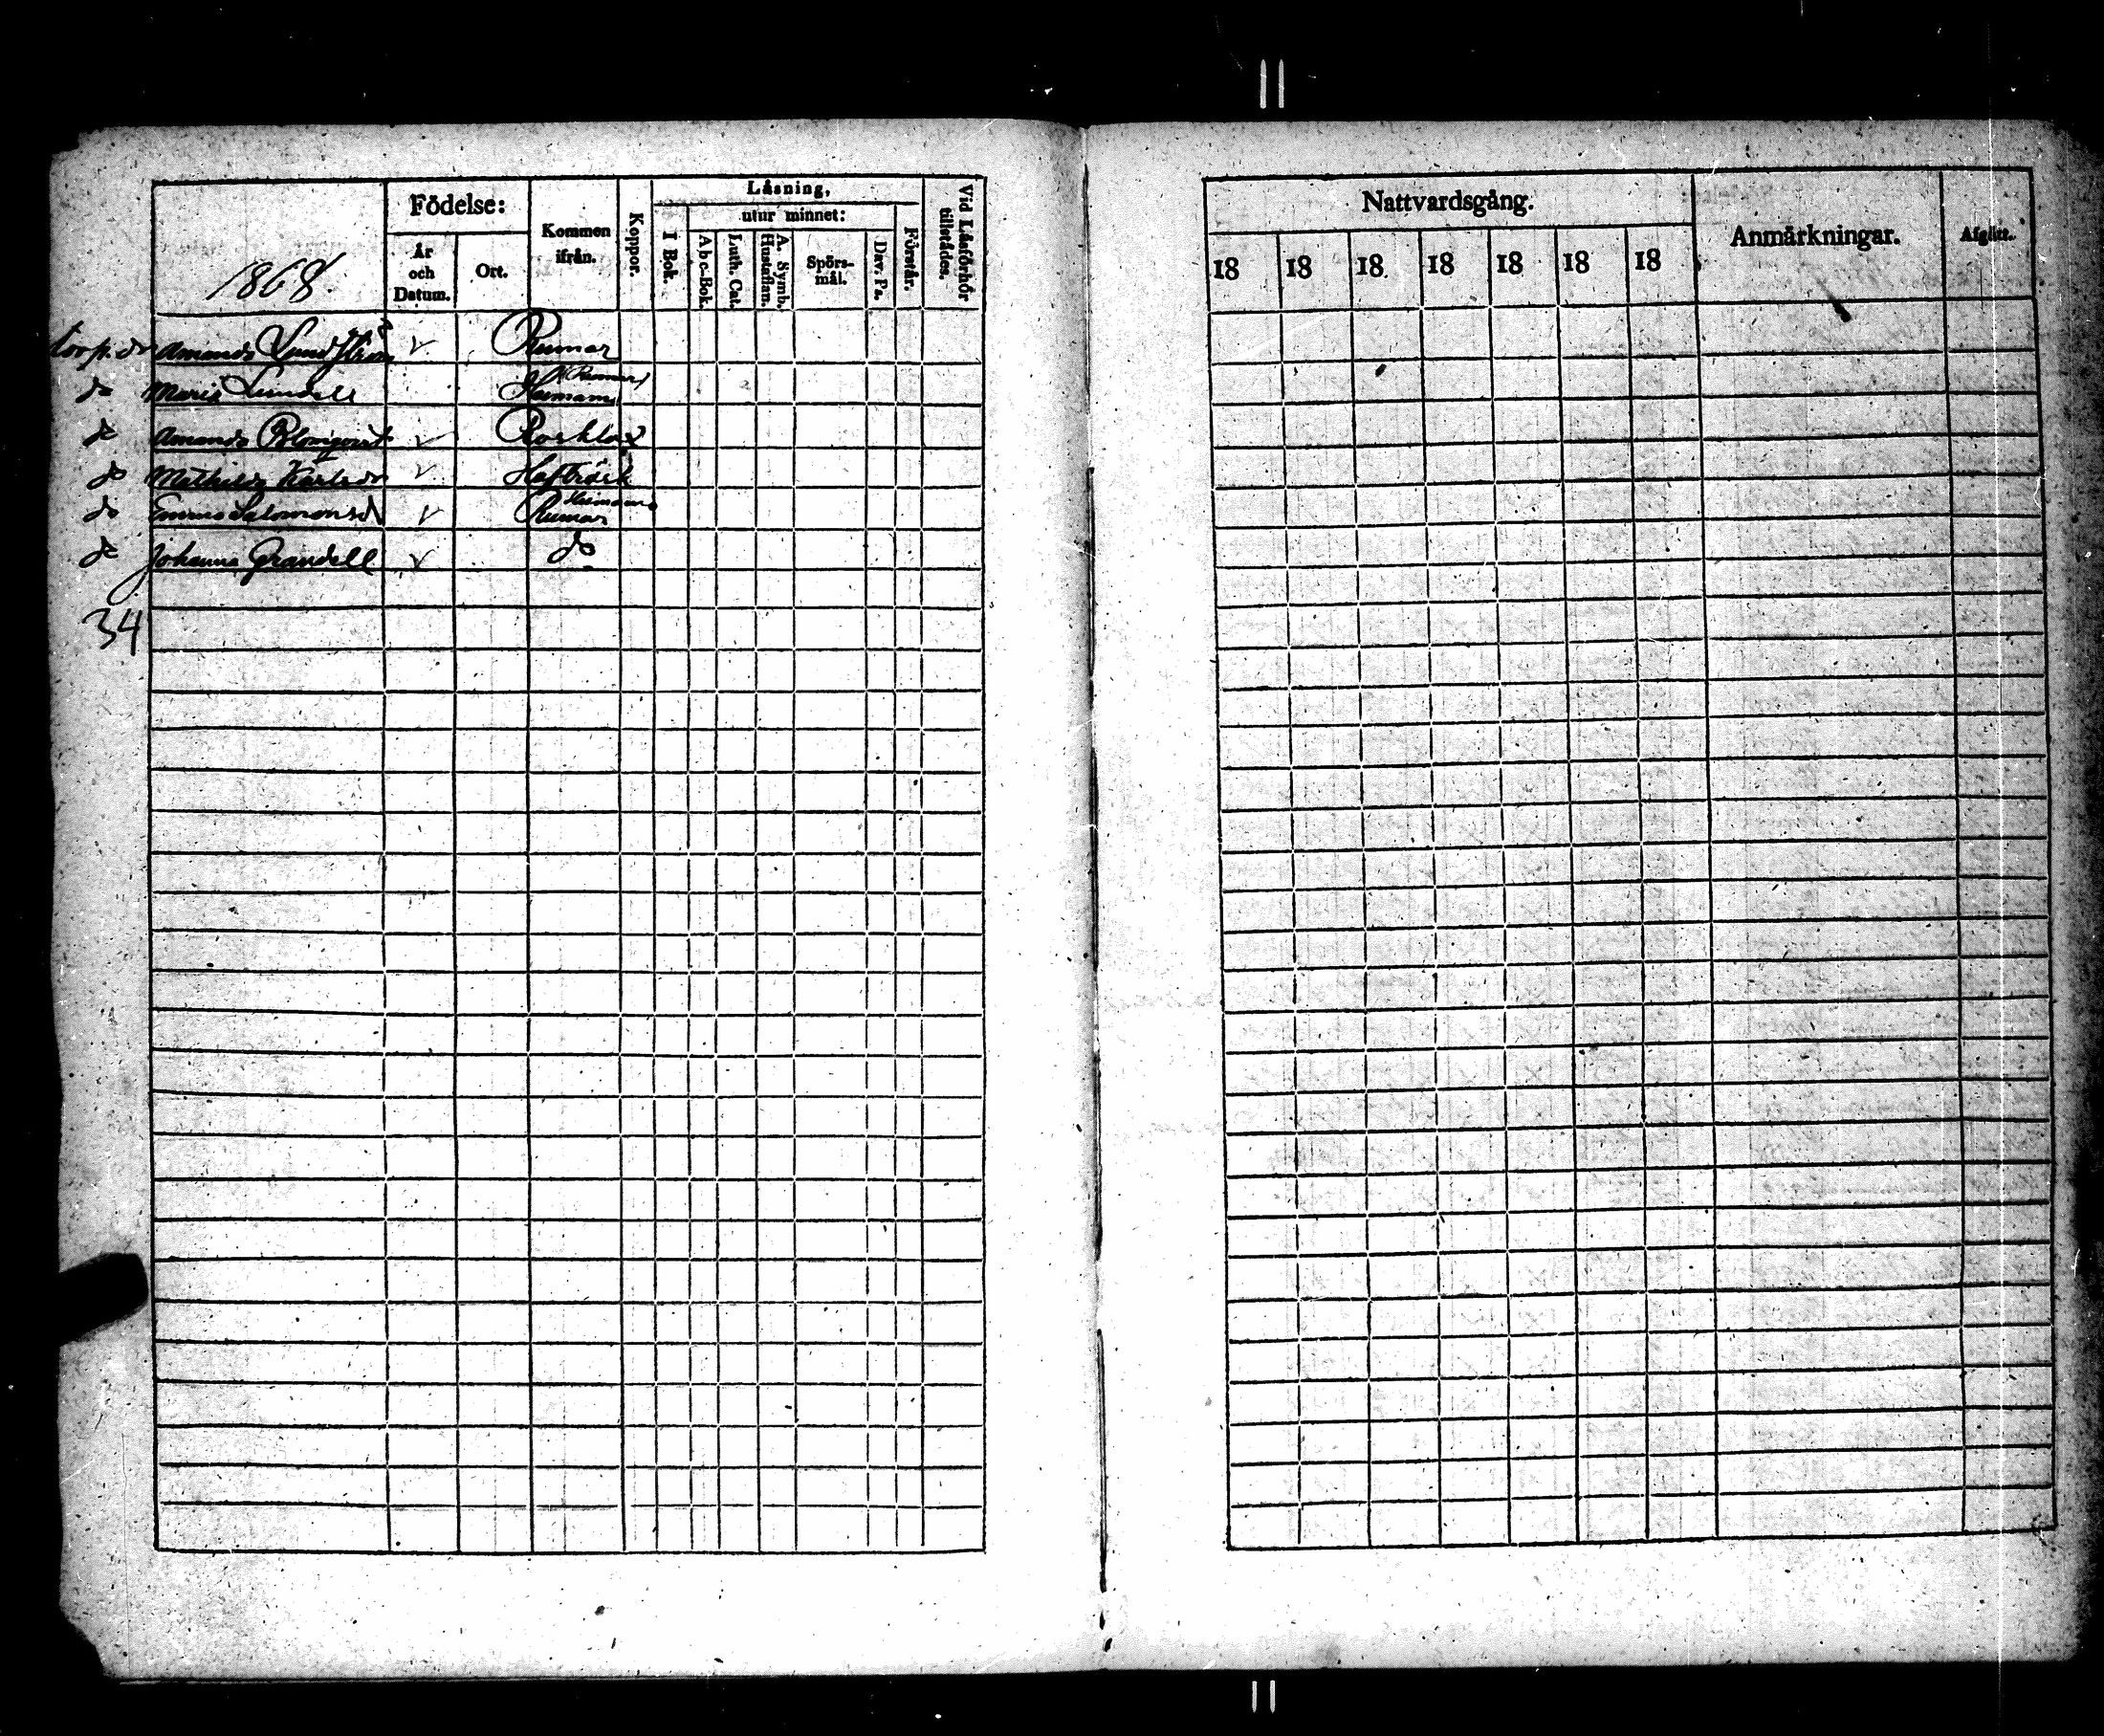 1868.
Födelse:
År och Datum.
Ort.
Kommen ifrån.
Koppor.
Läsning,
utur minnet:
I Bok.
Abc-Bok.
Luth. Cat.
A. Symb. Hustaflan.
Spörs-mål.
Dav. Ps.
Förstår.
Vid Läsförhör tillstädes.
torp. dr Amanda Lundström Rumar
do Maria Lundell
do Amanda Blomqvist Rosklax
do Mathilda Karlsdr Hafträsk
do Emma Salomonsd Rumar
do Johanna Grandell do
34
Nattvardsgång.
Anmärkningar.
Afgått.
18 18 18 18 18 18 18